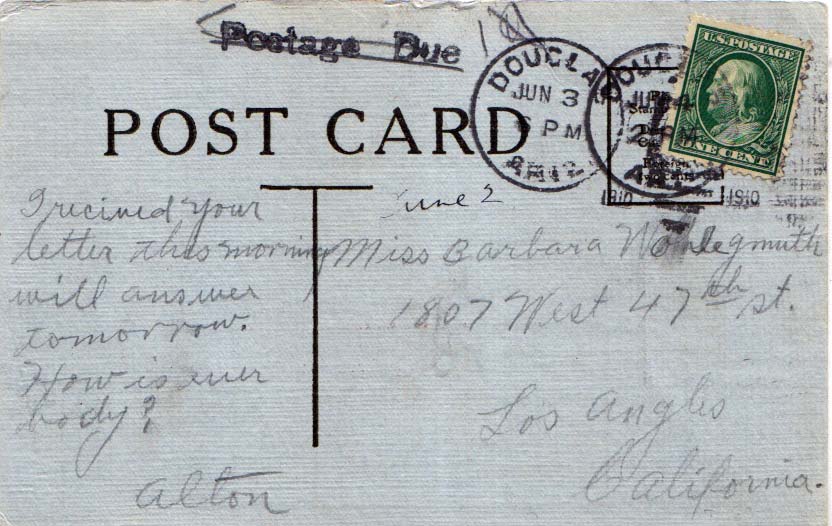 Postage Due
DOUGLAS
JUN 3
PM
ARIZ.
JUN 4
PM
U.S. POSTAGE
ONE CENT
1910
1910
POST CARD
June 2
I recieved your
letter this morning
will answer
tomorrow.
How is ever
body?
Alton
Miss Barbara Wohlegmuth
1807 West 47th st.
Los Angles
California.